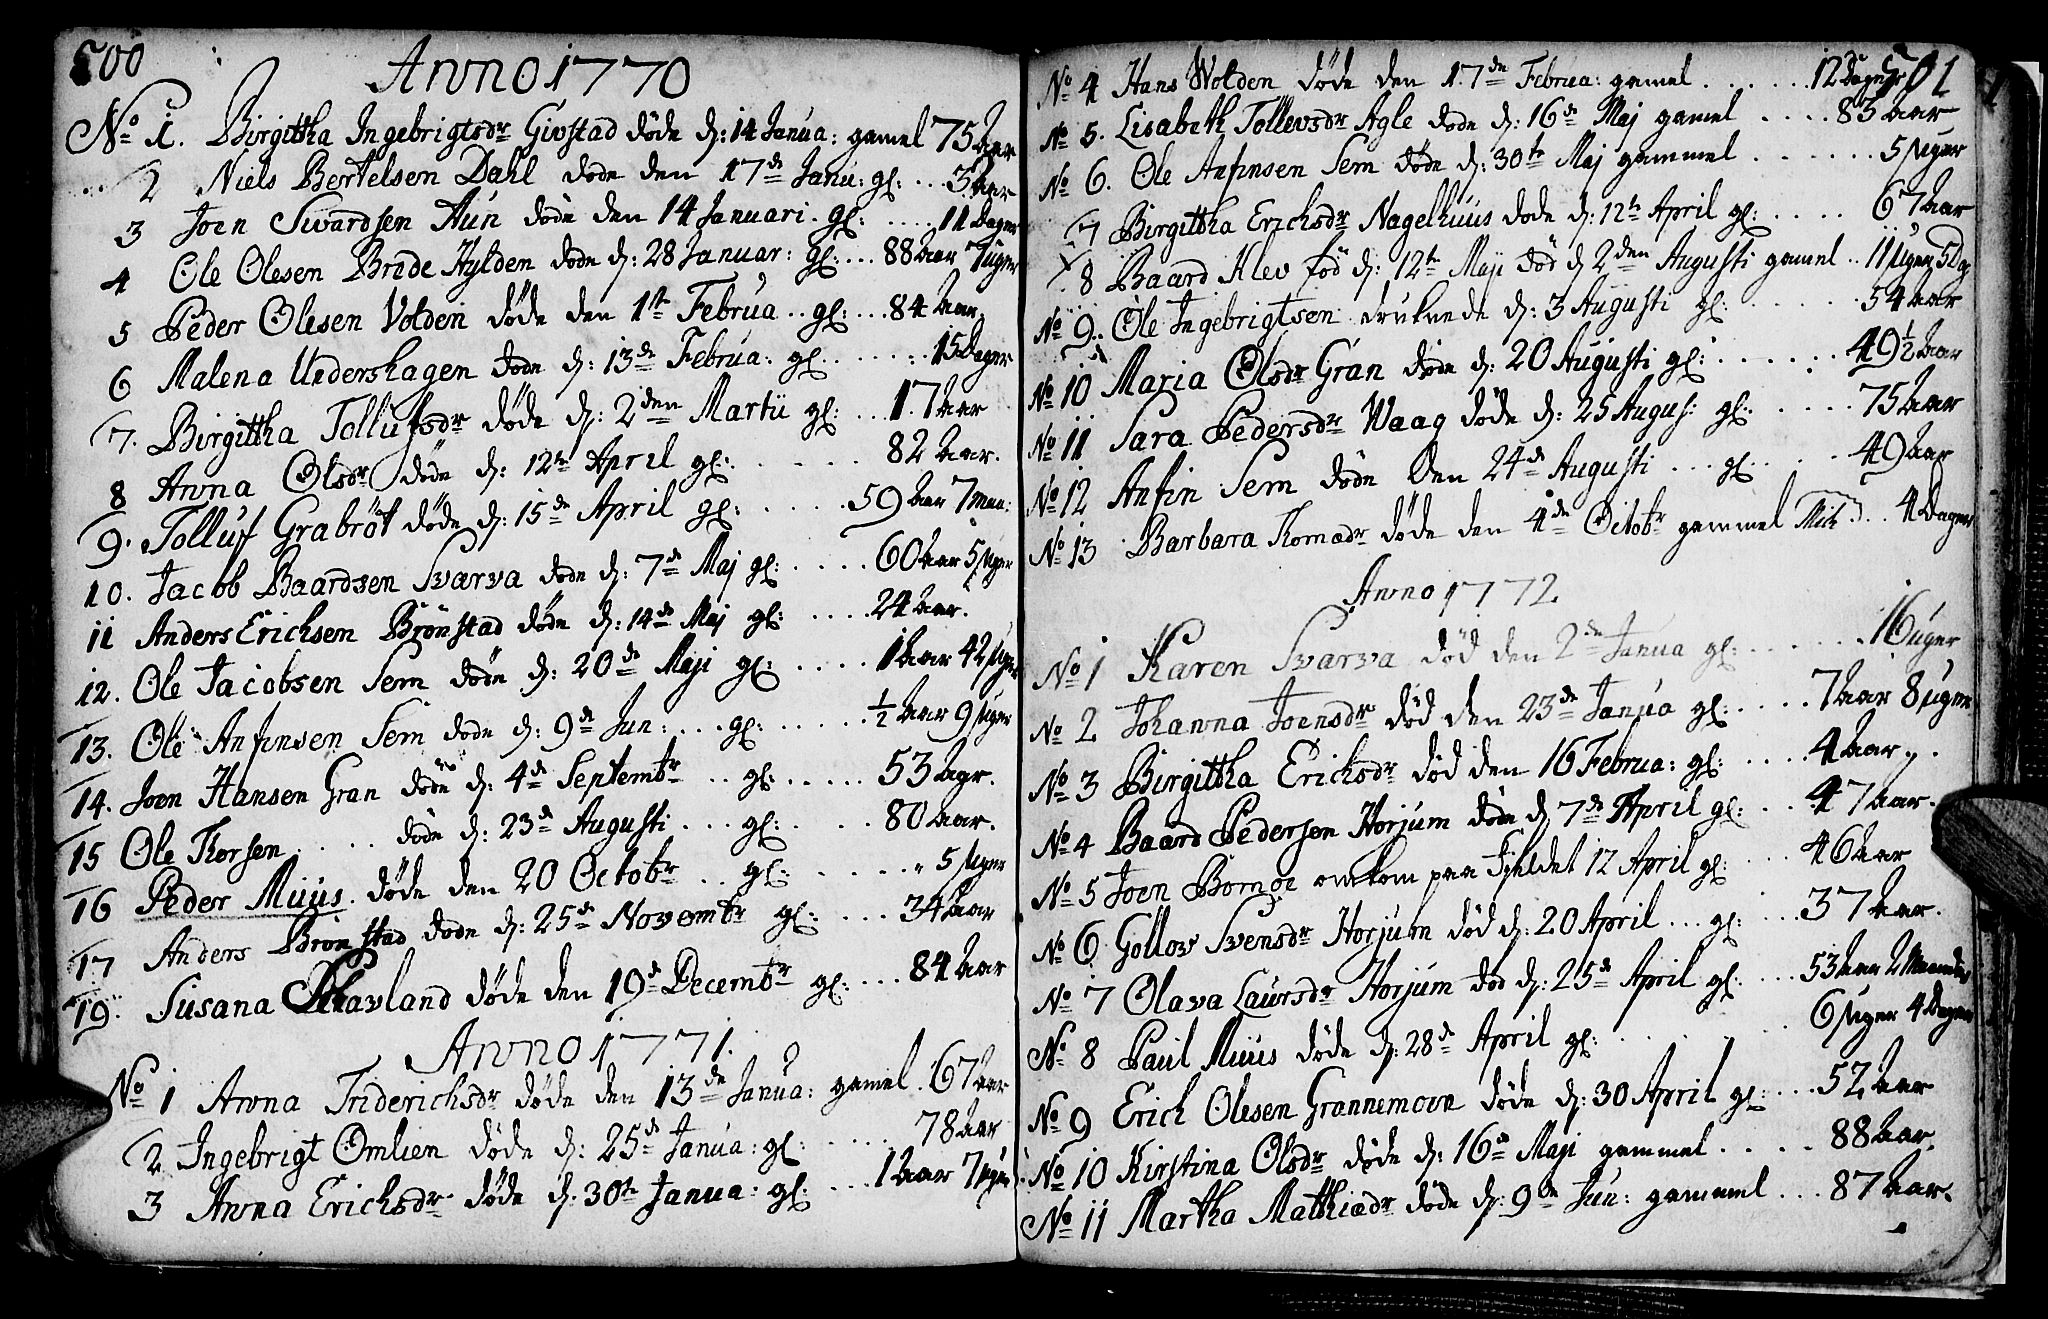 500
Anno 1770
No 1. Birgittha Ingebrigtsdr Givstad døde d: 14 Janua: gamel 75 Aar
2 Niels Bertelsen Dahl døde den 17de Janu: gl: ... 3 Aar
3 Joen Sivardsen Aun døde den 14 Januari. gl: .... 11 Dager
4 Ole Olesen Brede Hylden døde d: 28 Januar: gl: ... 88 Aar 7 uger
5 Peder Olesen Volden døde den 1te Februa .. gl: ... 84 Aar.
6 Malena Uedershagen døde d: 13de Februa: gl. ..... 15 Dager
7. Birgittha Tollufsdr døde d: 2den Martii gl: ... 17 Aar
8 Anna Olsdr døde d: 12te April gl: ...... 82 Aar.
9. Tolluf Grabrøt døde d: 15de April gl: ..... 59 Aar 7 maa:
10. Jacob Baardsen Svarva døde d: 7de Maj gl: ..... 60 Aar 5 uger
11 Anders Erichsen Brønstad døde d: 14de Maj gl: .... 24 Aar.
12. Ole Jacobsen Sem døde d: 20de Maji gl: ..... 1 Aar 42 uger
13. Ole Anfinsen Sem døde d: 9de Jun: ... gl: ...... ½ Aar 9 uger
14. Joen Hansen Gran døde d: 4de Septembr .. gl: ..... 53 Aar.
15 Ole Thorsen ..... døde d: 23de Augusti ... gl: ..... 80 Aar.
16 Peder Muus. døde den 20 Octobr .. gl: ...... 5 uger
17 Anders Brønstad døde d: 25de Novembr gl: .... 34 Aar
19. Susana Skavland døde den 19de Decembr gl: ... 84 Aar
Anno 1771.
No 1 Anna Friderichsdr døde den 13de Janua: gamel . 67 Aar
2 Ingebrigt Omlien døde d: 25de Janua: gl: ..... 78 Aar
3 Anna Erichsdr døde d: 30te Janua: gl: ... 1 Aar 7 uger
501
No 4 Hans Wolden døde den 17de Februa: gamel ...... 12 Dager
No 5. Lisabeth Tollevsdr Agle døde d: 16de Maj gamel .... 83 Aar
No 6. Ole Anfinsen Sem døde d: 30te Maj gammel ...... 5 uger
7 Birgittha Erichsdr Nagelhuus døde d: 12te April gl: .... 67 Aar
8 Baard Klev fød d: 12te Maji død d 2den Augusti gamel .. 11 uger 5 Dg
No 9. Ole Ingebrigtsen druknede d: 3 Augusti gl: ...... 54 Aar
No 10 Maria Olsdr Gran døde d: 20 Augusti gl: ...... 49½ Aar
No 11 Sara Pedersdr Waag døde d: 25 Augus: gl: ..... 75 Aar
No 12 Anfin Sem døde den 24de Augusti ... gl. .... 49 Aar
No 13 Barbara Thomædr døde den 4de Octobr gammel .. 4 Dager
Anno 1772
No 1 Karen Svarva død den 2de Janua gl: ...... 16 uger
No 2 Johanna Joensdr død den 23de Janua gl: .... 7 Aar 8 uger
No 3 Birgittha Erichsdr død den 16 Februa: gl: .... 4 Aar
No 4 Baard Pedersen Horjum døde d 7de April gl: ... 47 Aar.
No 5 Joen Bomoe omkom paa Fjeldet 12 April gl: ... 46 Aar
No 6 Gollov Svensdr Horjum død d: 20 April ... gl: ... 37 Aar.
No 7 Olava Laursdr Horjum død d: 25de April gl: ... 53 Aar 2 Maander
No 8 Paul Muus døde d: 28de April gl: ....... 6 uger 4 Dager
No 9 Erich Olesen Grannemoen døde d: 30 April gl: ... 52 Aar
No 10 Kirstina Olsdr døde d: 16de Maji gammel ..... 88 Aar.
No 11 Martha Mathiædr døde d: 9de Jun: gammel ... 87 Aar.